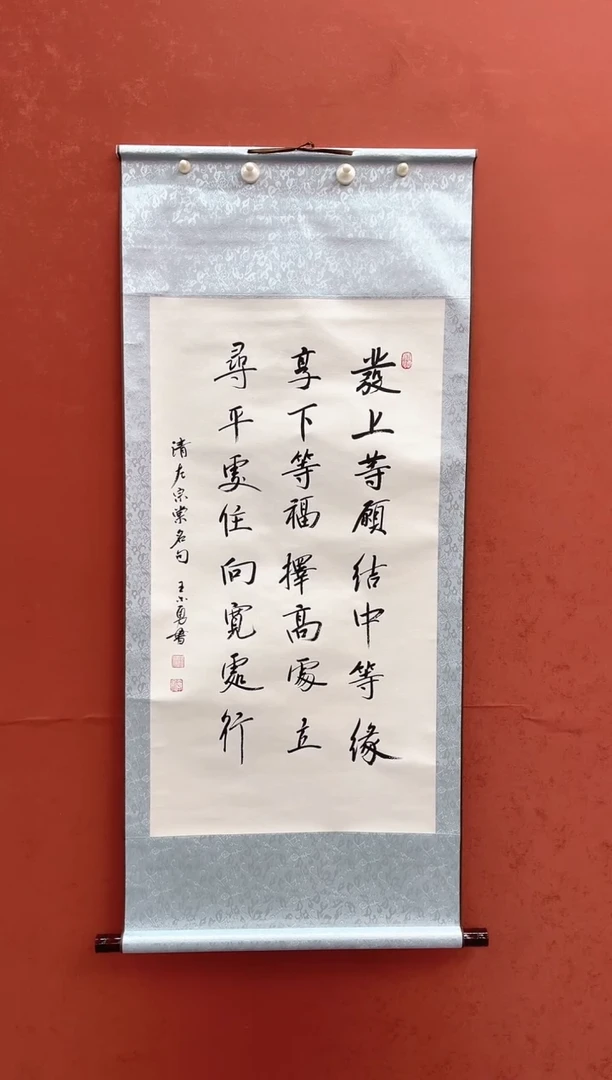 發上等願結中等緣
享下等福擇高處立
尋平處住向寬處行
清左宗棠名句 王小勇書